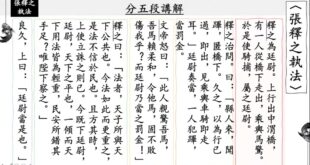 分五段講解
張釋之執法
〈張釋之執法〉
釋之為廷尉。上行出中渭橋,
有一人從橋下走出,乘輿馬驚。
於是使騎捕,屬之廷尉。
釋之治問。曰:「縣人來,聞
蹕,匿橋下。久之,以為行已
過,即出,見乘輿車騎即走
耳。」廷尉奏當:一人犯蹕,
當罰金。
文帝怒曰:「此人親驚吾馬,
吾馬賴柔和,令他馬,固不敗
傷我乎?而廷尉乃當之罰金!」
釋之曰:「法者,天子所與天
下公共也。今法如此而更重之,
是法不信於民也。且方其時,
上使立誅之則已。今既下廷尉,
廷尉,天下之平也,一傾而天
下用法皆為輕重,民安所錯其
手足?唯陛下察之。」
良久,上曰:「廷尉當是也。」